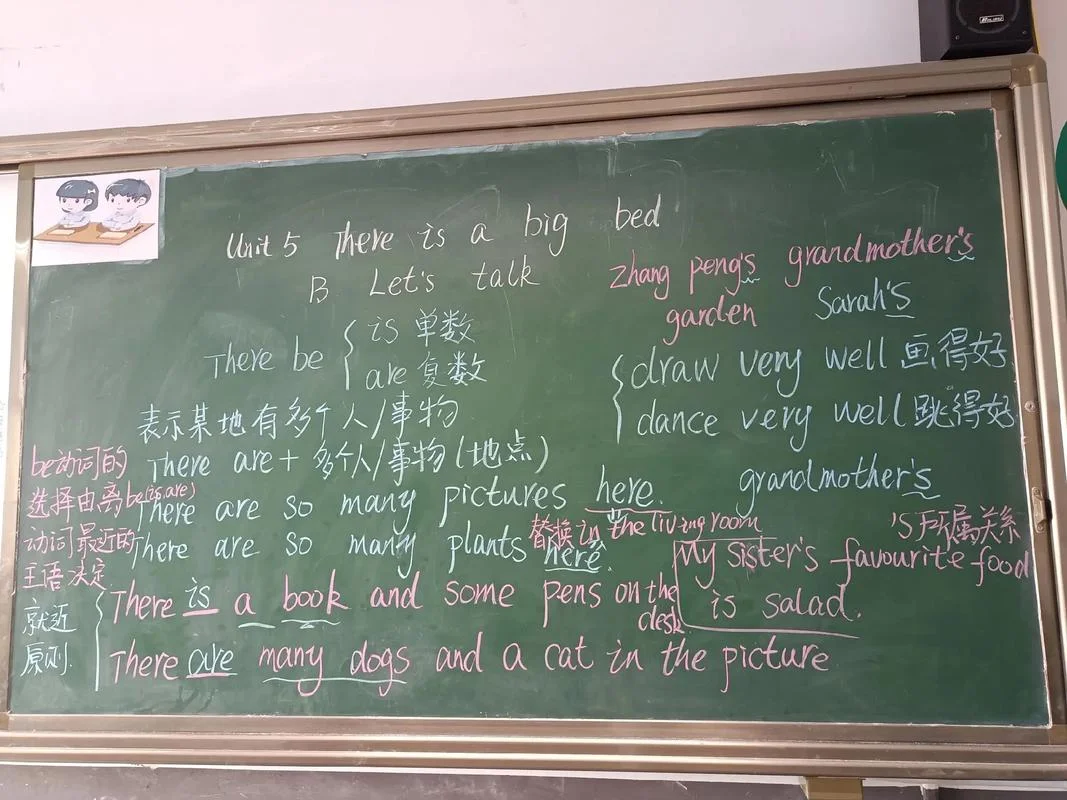 Unit 5 There is a big bed
B Let's talk
There be { is 单数
are 复数
表示某地有多个人/事物
There are + 多个人/事物(地点)
There are so many pictures here.
替换 in the living room
There are so many plants here.
There is a book and some pens on the desk
There are many dogs and a cat in the picture
be动词的
选择由离be(is,are)
动词最近的
主语决定
就近
原则
zhang peng's grandmother's
garden
Sarah's
{ draw very well 画得好
dance very well 跳得好
grandmother's
's 所属关系
My sister's favourite food
is salad.